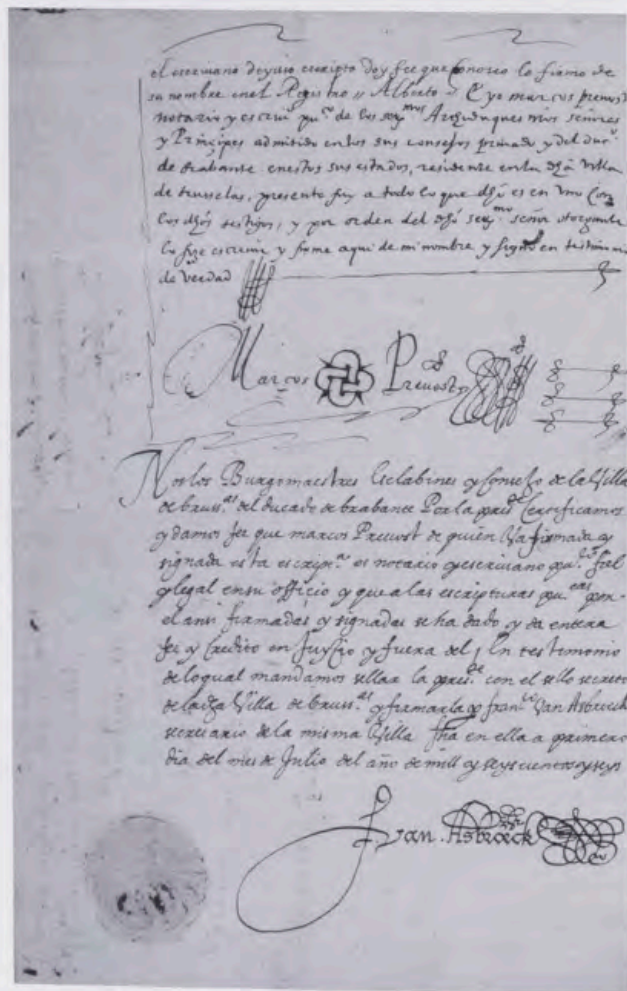 el escriuano deyuso escripto doy fee que conozco lo firmo de
su nombre enel Registro // Alberto // E yo marcos preuost
notario y escriu.º pu.co de los ser.mos Archiduques mis señores
y Principes admitido en los sus consejos priuado y del du.º
de brabante enestos sus estados, residente enla dha villa
de bruselas, presente fuy a todo lo que dho es en vno con
los dhos testigos, y por orden del dho ser.mo señor otorgante
lo fize escreuir y firme aqui de mi nombre y signo en testimonio
de verdad
Marcos Preuost
Nos los Burgomaestres Esclabines y Consejo de la Villa
de brus.as del ducado de brabante Por la pres.te Certificamos
y damos fee que marcos Preuost de quien va firmada y
signada esta escrip.ra es notario y escriuano pu.co fiel
y legal en su officio y que a las escripturas pu.cas por
el ansi firmadas y signadas se ha dado y da entera
fee y credito en Juyçio y fuera del / En testimonio
de loqual mandamos sellar la pres.te con el sello secreto
de la dha Villa de brus.as y firmarla por fran.co Van Asbroeck
secretario de la misma Villa fha en ella a primero
dia del mes de Julio del año de mill y seyscientos y seys
F. van. Asbroeck